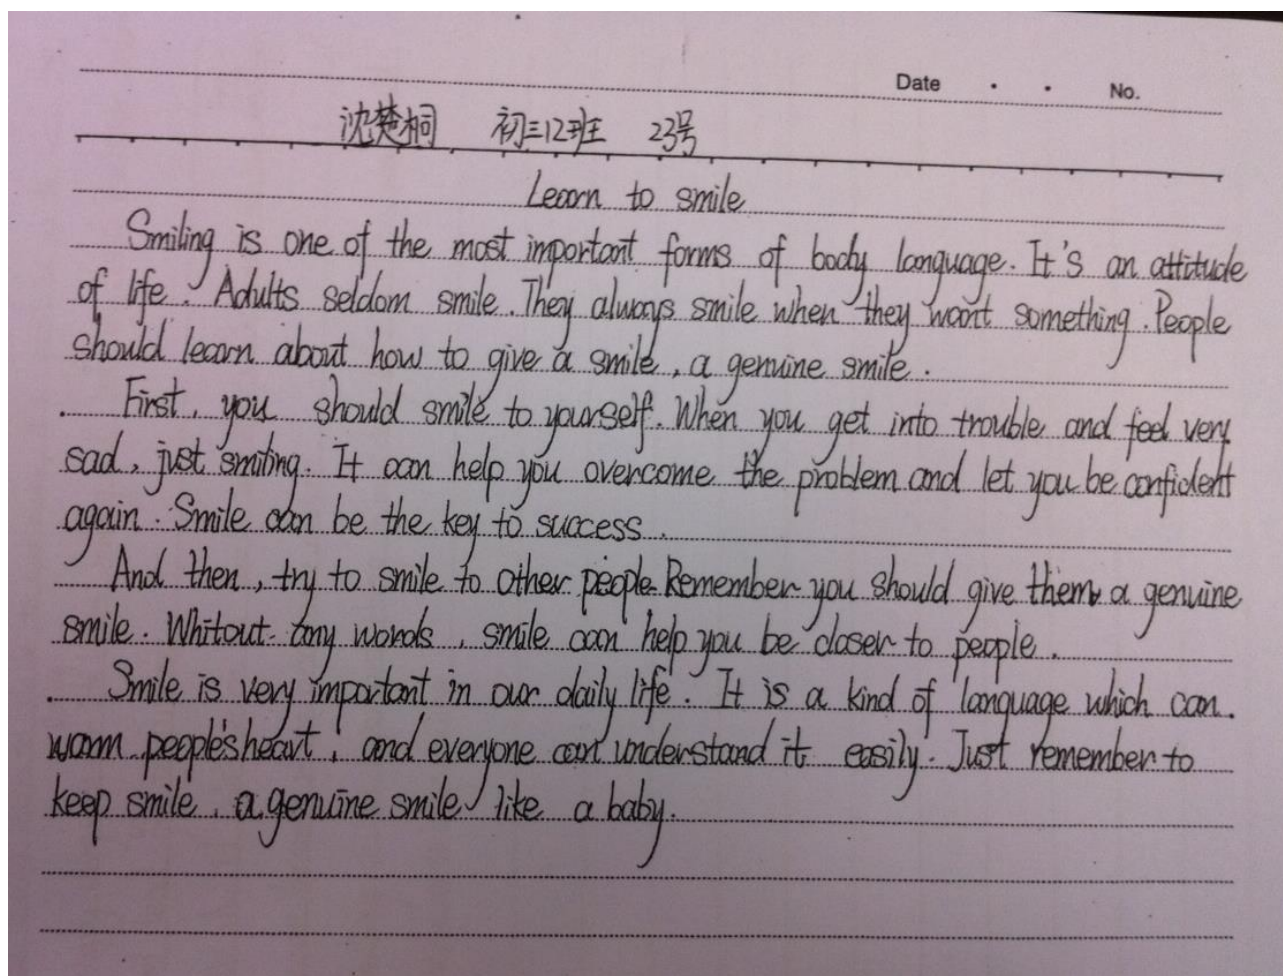 Date · · No.
沈楚桐 初三12班 23号
Learn to smile
Smiling is one of the most important forms of body language. It's an attitude
of life. Adults seldom smile. They always smile when they want something. People
should learn about how to give a smile, a genuine smile.
First, you should smile to yourself. When you get into trouble and feel very
sad, just smiling. It can help you overcome the problem and let you be confident
again. Smile can be the key to success.
And then, try to smile to other people. Remember you should give them a genuine
smile. Whitout any words, smile can help you be closer to people.
Smile is very important in our daily life. It is a kind of language which can
warm people's heart, and everyone can understand it easily. Just remember to
keep smile, a genuine smile like a baby.